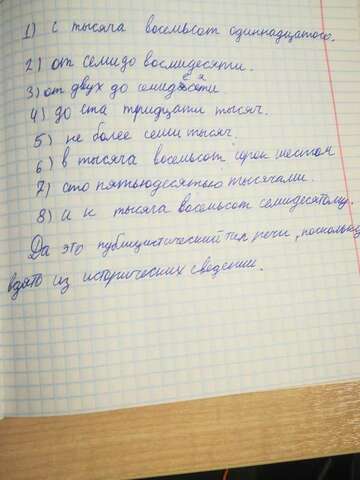 1) с тысяча восемьсот одиннадцатого.
2) от семидо восмидесяти.
3) от двух до семидесяти
4) до ста тридцати тысяч.
5) не более семи тысяч.
6) в тысяча восемьсот сорок шестом
7) сто пятьюдесятью тысячами.
8) и к тысяча восемьсот семидесятому.
Да это публицистический тип речи, поскольку
взято из исторических сведений.